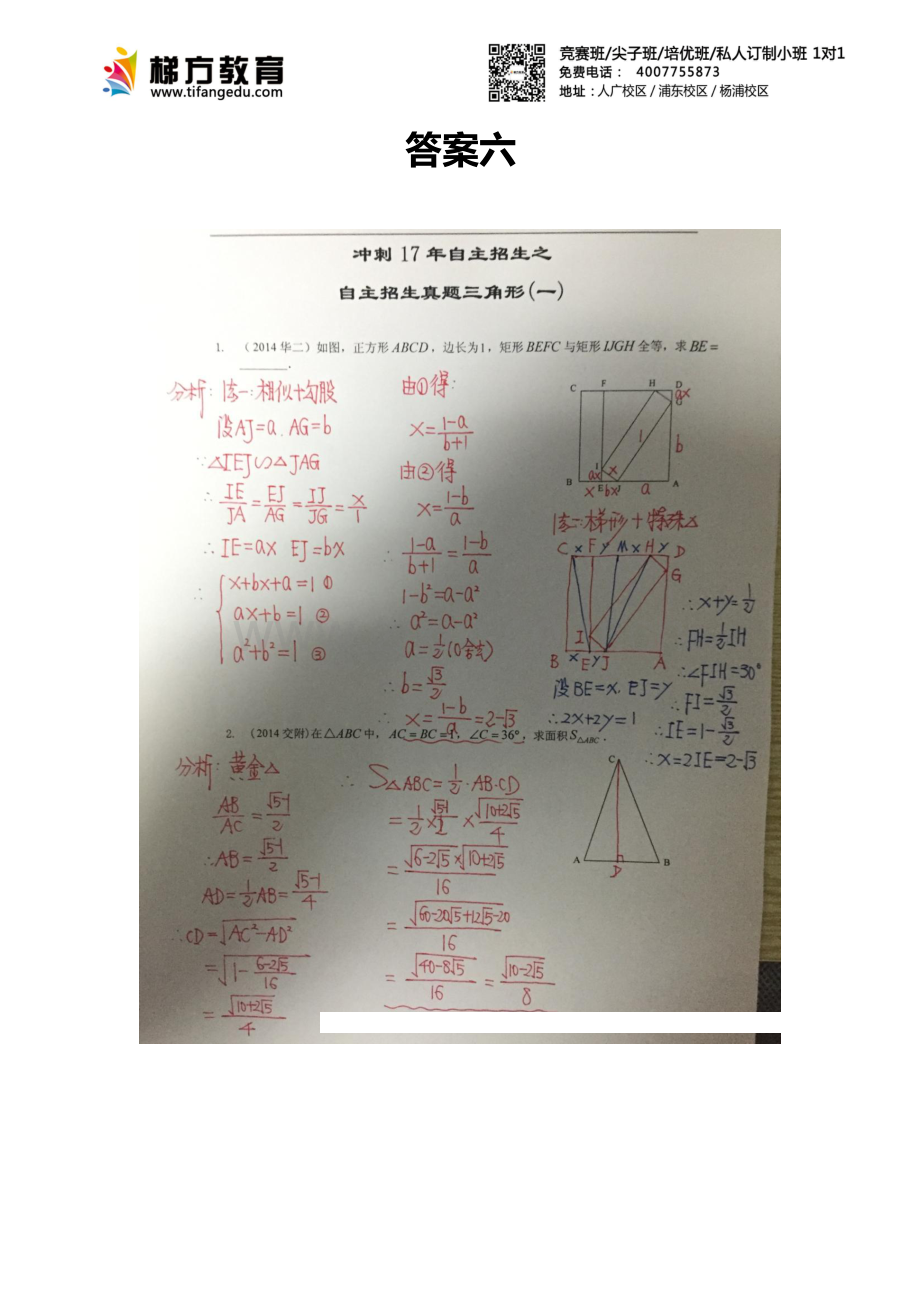 梯方教育
www.tifangedu.com
竞赛班/尖子班/培优班/私人订制小班 1对1
免费电话: 4007755873
地址:人广校区 / 浦东校区 / 杨浦校区
答案六
冲刺 17 年自主招生之
自主招生真题三角形(一)
1. (2014 华二)如图,正方形 ABCD,边长为1,矩形 BEFC 与矩形 IJGH 全等,求 BE =
______.
分析: 法一:相似+勾股
设AJ=a.AG=b
∵△IEJ∽△JAG
∴ IE/JA = EJ/AG = IJ/JG = x/1
∴IE=ax EJ=bx
∴ { x+bx+a=1 ①
ax+b=1 ②
a²+b²=1 ③
由①得:
x= (1-a)/(b+1)
由②得
x= (1-b)/a
∴ (1-a)/(b+1) = (1-b)/a
1-b²=a-a²
∴ a²=a-a²
a=1/2 (0舍去)
∴b= √3/2
∴ x= (1-b)/a =2-√3
C F H D
ax
G
1
b
I
ax x
B x E bx J a A
法二:梯形+特殊△
C x F y M x H y D
G
I
B x E y J A
设BE=x. EJ=y
∴2x+2y=1
∴x+y=1/2
∴FH=1/2 IH
∴∠FIH=30°
∴FI= √3/2
∴IE=1- √3/2
∴x=2IE=2-√3
2. (2014 交附)在△ABC 中, AC = BC = 1, ∠C = 36°,求面积 S△ABC.
分析: 黄金△
AB/AC = (√5-1)/2
∴AB= (√5-1)/2
AD= 1/2 AB= (√5-1)/4
∴CD=√(AC²-AD²)
=√(1- (6-2√5)/16)
= √(10+2√5)/4
∴ S△ABC= 1/2 ·AB·CD
= 1/2 × (√5-1)/2 × √(10+2√5)/4
= √(6-2√5)×√(10+2√5)/16
= √(60-20√5+12√5-20)/16
= √(40-8√5)/16 = √(10-2√5)/8
C
A D B